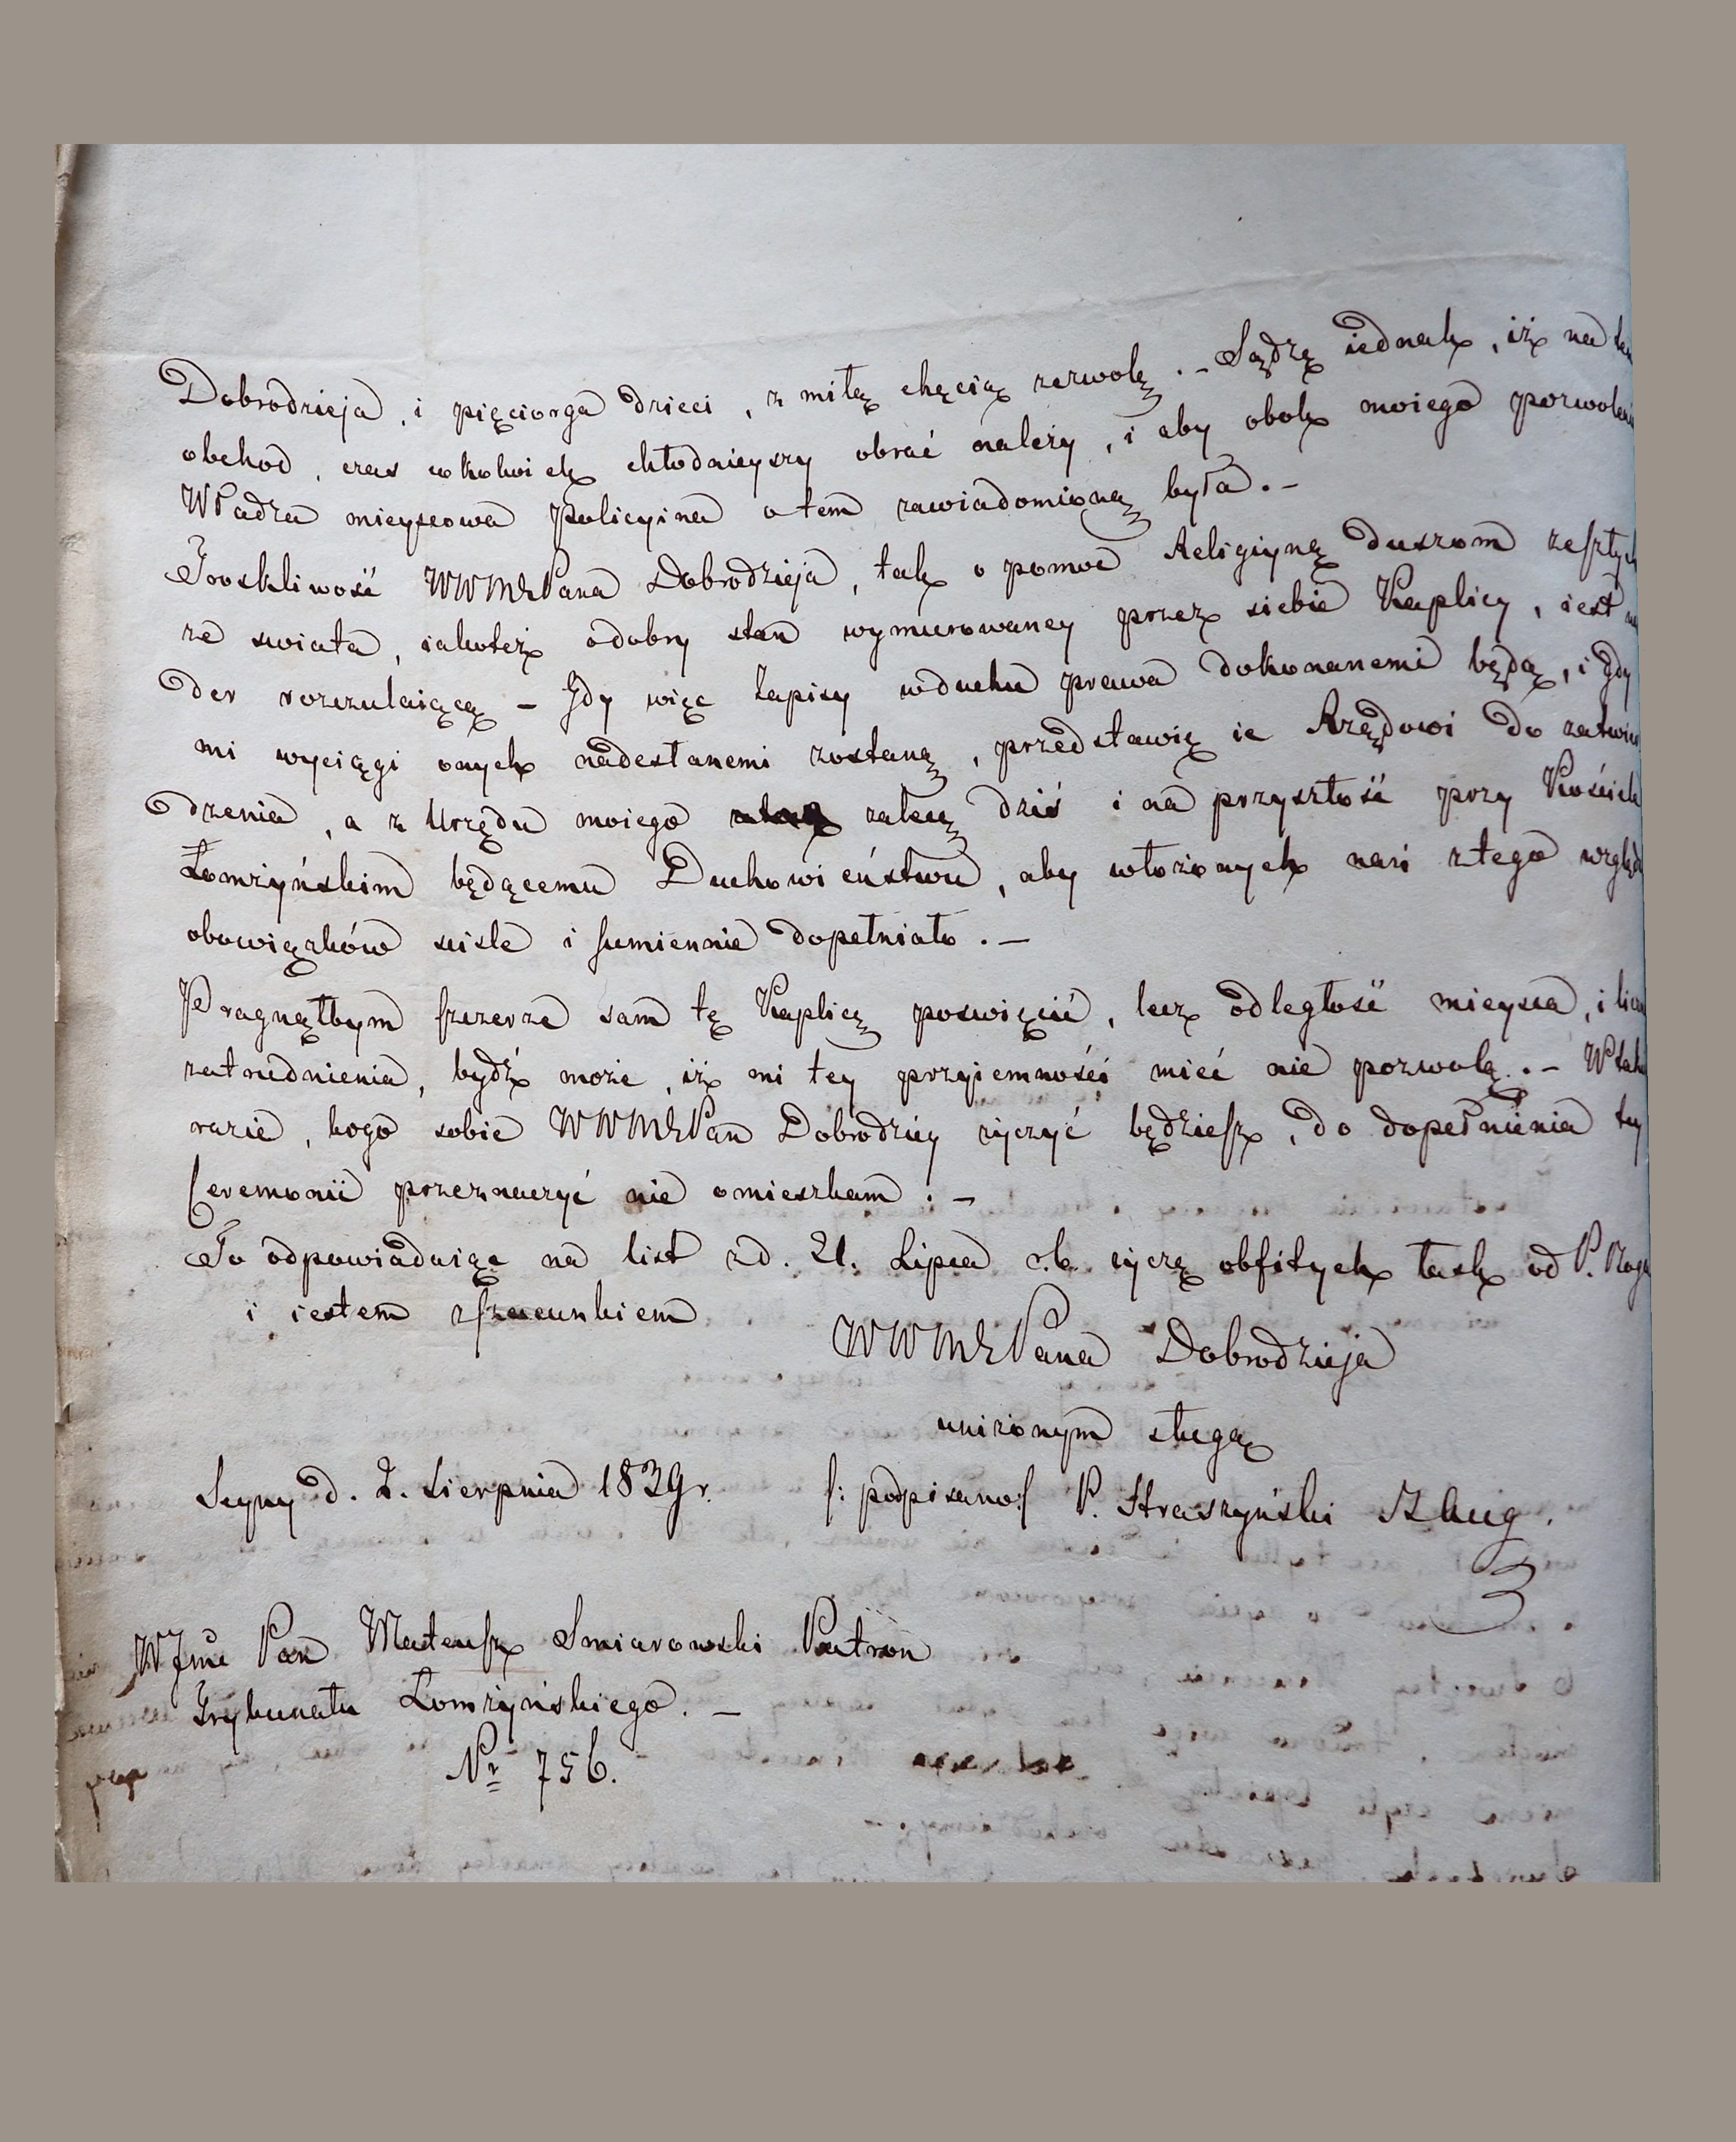 Dobrodzieja, i pięciorga dzieci, z miłą chęcią zezwolę. – Sądzę iednak, iż na
obchod, czas cokolwiek chłodnieyszy obrać należy, i aby obok moiego pozwoleni
Władza mieyscowa Policyina o tem zawiadomioną była. –
Troskliwość WWMCPana Dobrodzieja, tak o pomoc Religiyną duszom zeszłych
ze swiata, iakoteż o dobry stan wymurowaney przez siebie Kaplicy, iest
der rozczulaiącą – Gdy więc Zapisy w duchu prawa dokonanemi będą, i gdy
mi wyciągi onych nadesłanemi zostaną, przedstawię ie Rządowi do zatwier
dzenia, a z Urzędu moiego zalecę dziś i na przyszłość przy Kościele
Łomżyńskim będącemu Duchowieństwu, aby włożonych nań z tego względu
obowiązków scisle i sumiennie dopełniało. –
Pragnąłbym szczerze sam tę Kaplicę poswięcić, lecz odległość mieysca, i liczn
zatrudnienia, bydź może, iż mi tey przyiemności mieć nie pozwolą. – W taki
razie, kogo sobie WWMCPan Dobrodziey życzyć będziesz, do dopełnienia tey
Ceremonii przeznaczyć nie omieszkam. –
To odpowiadaiąc na list z d. 21. Lipca r.b. życzę obfitych łask od P. Boga
i iestem z szacunkiem
WWMCPana Dobrodzieja
uniżonym sługą
Seyny d. 2. Sierpnia 1839 r. /: podpisano :/ P. Straszyński B Aug.
WJmć Pan Mateusz Smiarowski Patron
Trybunału Łomżyńskiego. –
Nr 756.